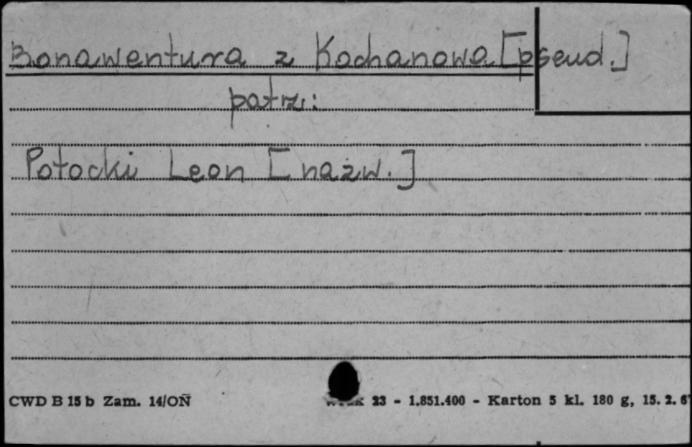 Bonawentura z Kochanowa [pseud.]
patrz:
Potocki Leon [nazw.]
CWD B 15 b Zam. 14/OÑ 23 - 1.851.400 - Karton 5 kl. 180 g, 15. 2. 6